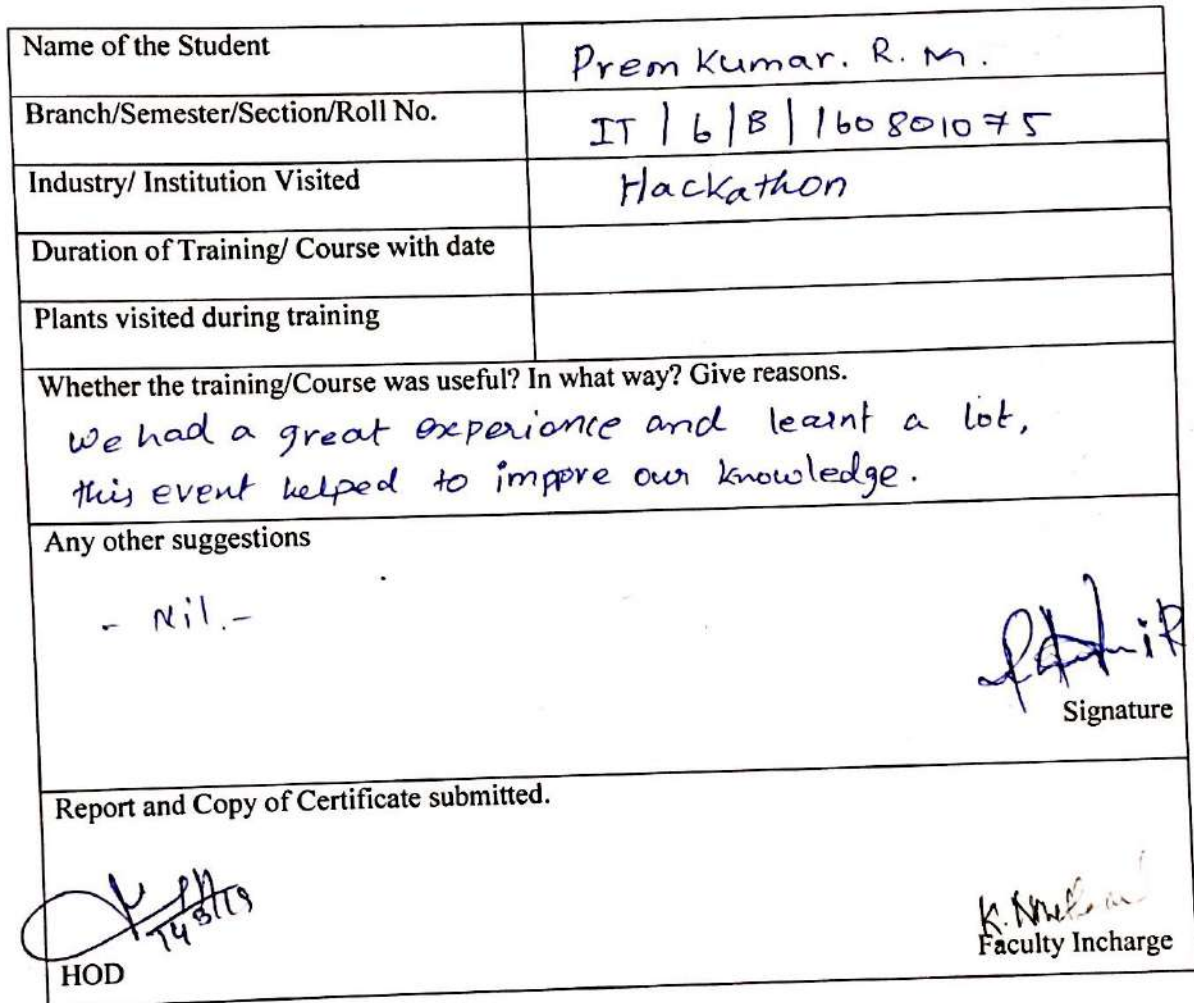 Name of the Student Prem Kumar. R. M.
Branch/Semester/Section/Roll No. IT | 6 | B | 160801075
Industry/ Institution Visited Hackathon
Duration of Training/ Course with date
Plants visited during training
Whether the training/Course was useful? In what way? Give reasons.
We had a great experiance and learnt a lot,
this event helped to impore our knowledge.
Any other suggestions
- Nil.-
Signature
Report and Copy of Certificate submitted.
HOD
Faculty Incharge